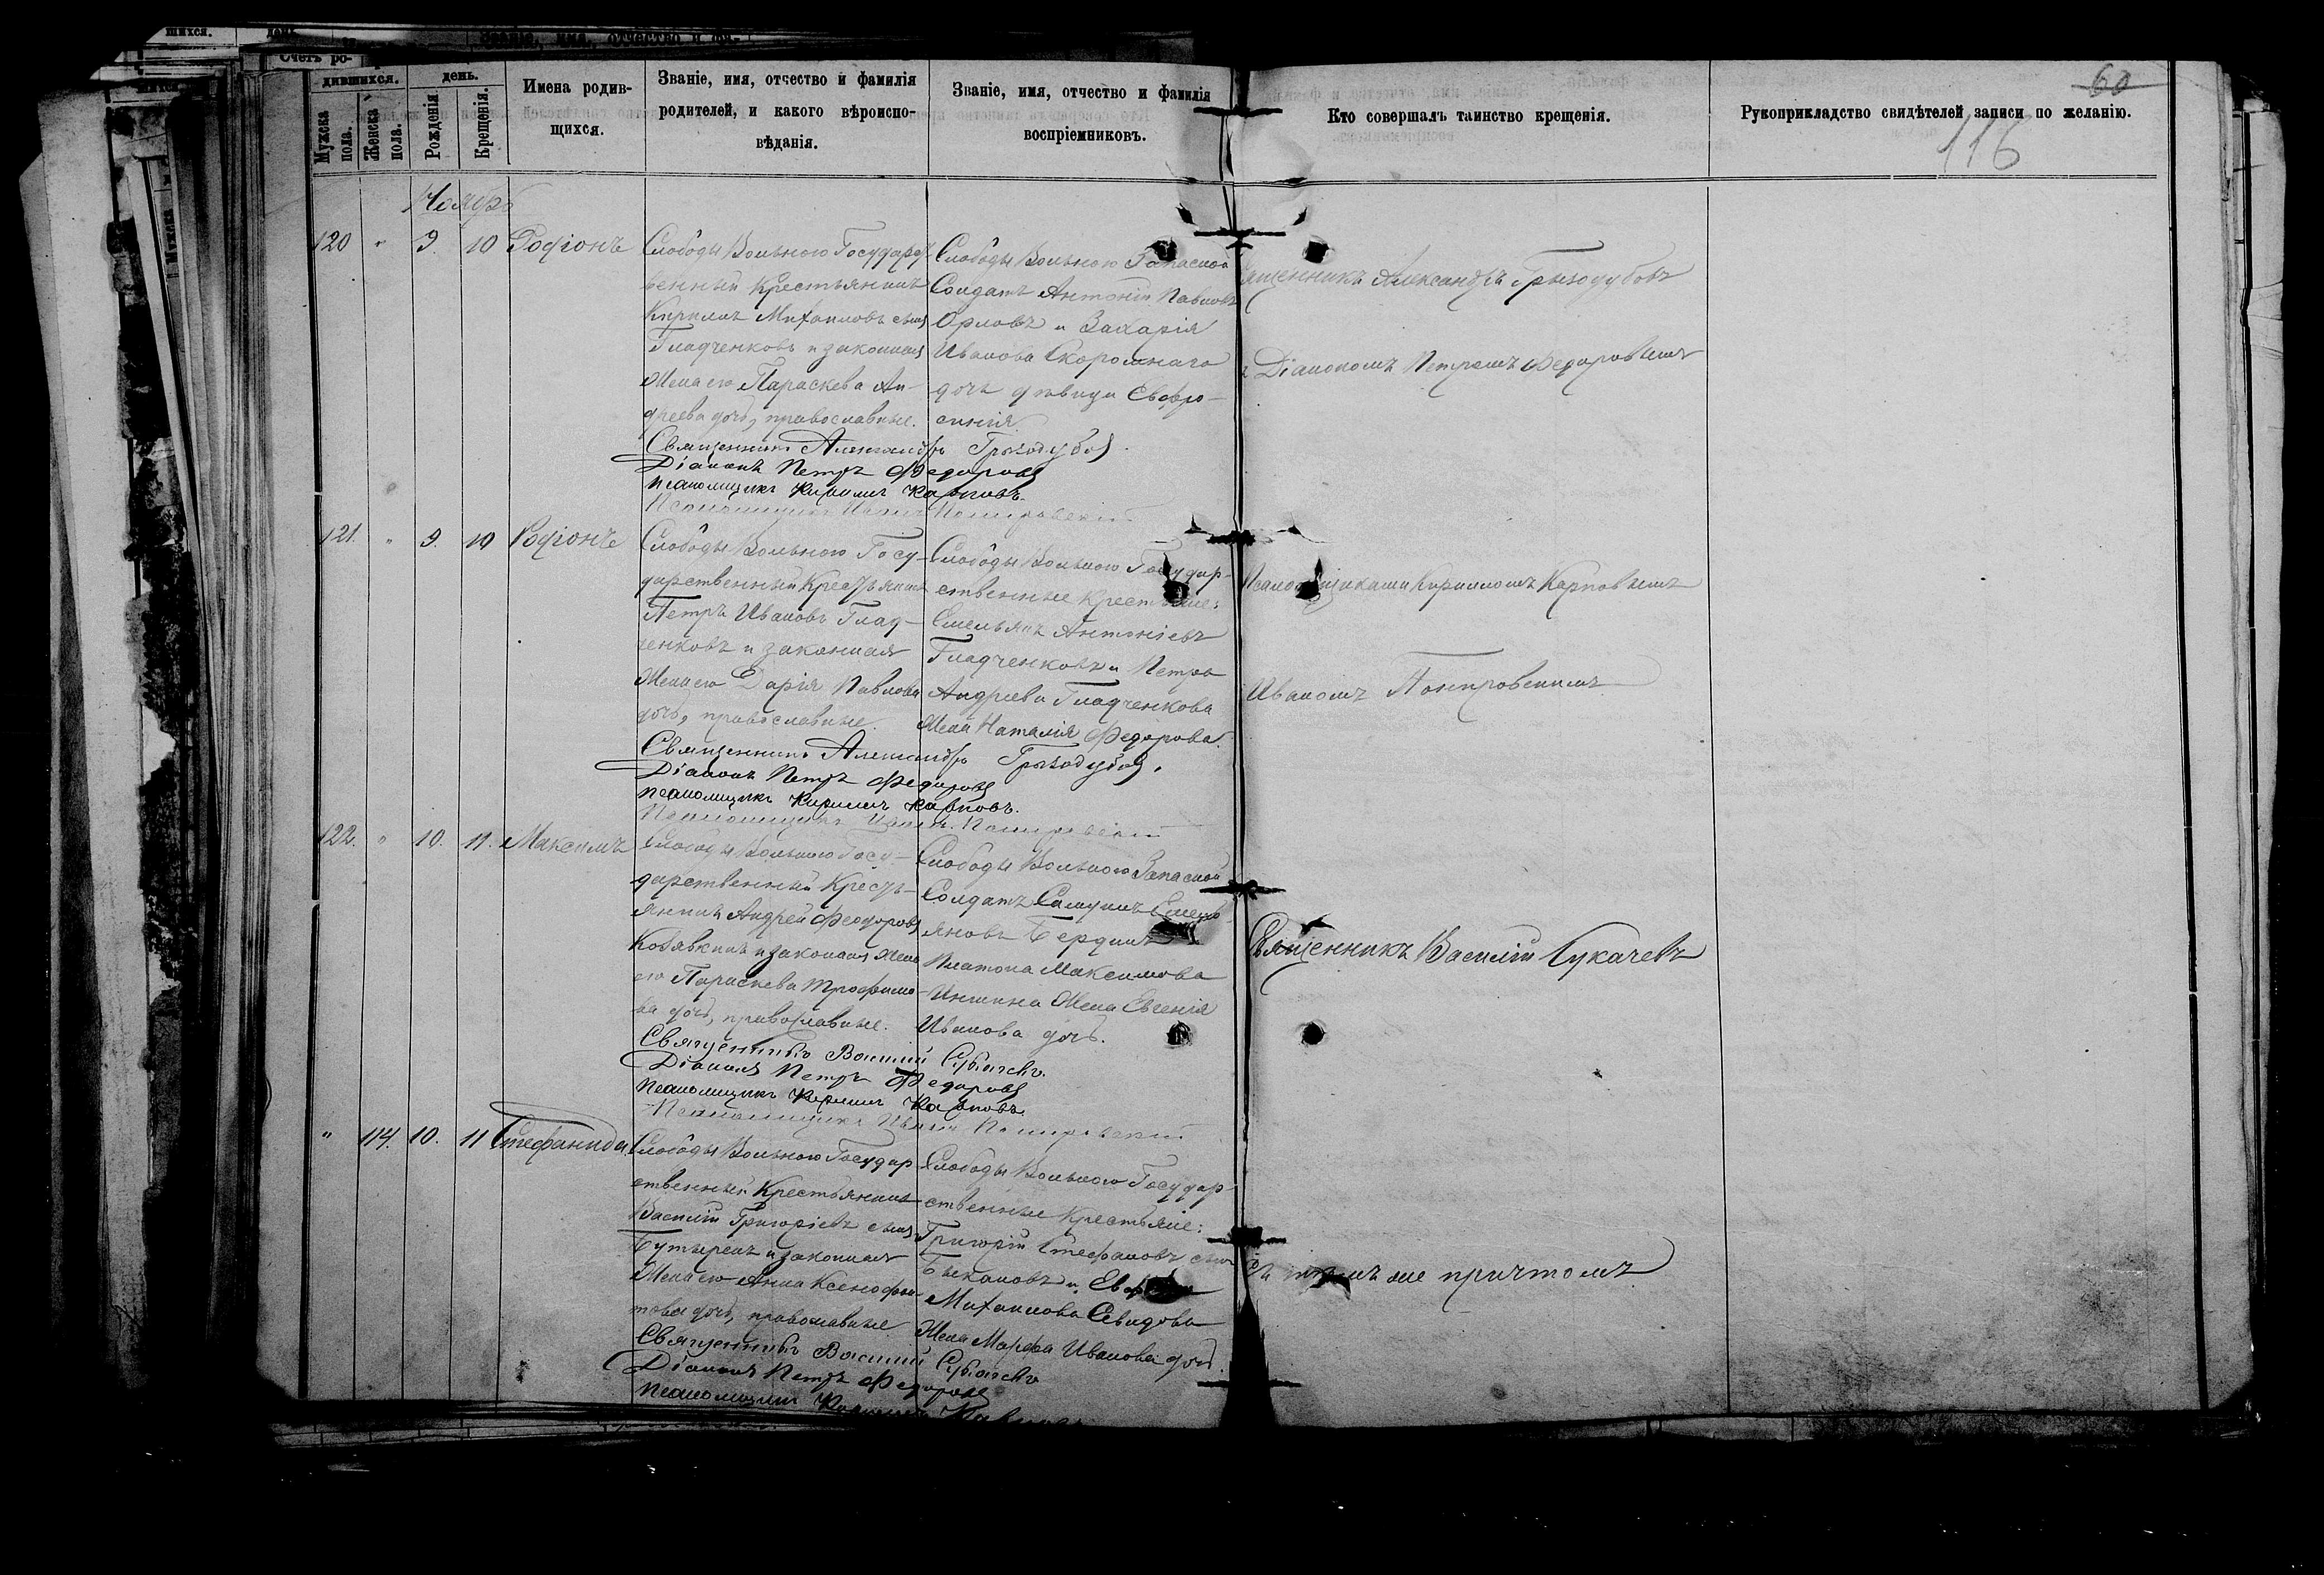 60
116
Счетъ ро-
дившихся.
день.
Мужска пола.
Женска пола.
Рожденія
Крещенія.
Имена родив-
щихся.
Званіе, имя, отчество и фамилія
родителей, и какого вѣроиспо-
вѣданія.
Званіе, имя, отчество и фамилія
воспріемниковъ.
Кто совершалъ таинство крещенія.
Рукоприкладство свидѣтелей записи по желанію.
Ноябрь
120 " 9. 10 Родіонъ
Слободы Вольного Государст-
венный Крестьянинъ
Кириллъ Михаиловъ сынъ
Гладченковъ и законная
Жена его Параскева Ан-
дреева дочь, православные.
Слободы Вольного Запасной
Солдатъ Антоній Павловъ
Орловъ и Захарія
Иванова Скоромнаго
дочь девица Евфро-
синія.
Священникъ Александръ Грызодубовъ
и Діакономъ Петромъ Федоровымъ
Священникъ Александръ Грызодубов
Діаконъ Петръ Федоровъ
Псаломщикъ Кириллъ Карповъ.
Псаломщикъ Иванъ Покировскій
121. " 9. 10 Родіонъ
Слободы Вольного Госу-
дарственный Крестьянинъ
Петръ Ивановъ Глад-
ченковъ и законная
Жена его Дарія Павлова
дочь, православные.
Слободы Вольного Государ-
ственные Крестьяне:
Емельянъ Антоніевъ
Гладченковъ и Петра
Андреева Гладченкова
Жена Наталія Федорова.
Псаломщиками Кирилломъ Карповымъ
Иваномъ Покировскимъ
Священникъ Александръ Грызодубов.
Діаконъ Петръ Федоровъ
Псаломщикъ Кириллъ Карповъ.
Псаломщикъ Иванъ Покировскій
122. " 10. 11. Максимъ
Слободы Вольного Госу-
дарственный Кресть-
янинъ Андрей Феодоровъ
Козявкинъ и законная Жена
его Параскева Трофимо-
ва дочь, православные.
Слободы Вольного Запасной
Солдатъ Самуилъ Емель-
яновъ Бердинъ
Платона Максимова
Иншина Жена Евгенія
Иванова дочь.
Священникъ Василій Сукачевъ
Священникъ Василій Сукачевъ.
Діаконъ Петръ Федоровъ
Псаломщикъ Кириллъ Карповъ.
Псаломщикъ Иванъ Покировскій
" 114. 10. 11 Стефанида.
Слободы Вольного Государ-
ственный Крестьянинъ
Василій Григоріевъ сынъ
Бутыренъ и законная
Жена его Анна Ксенофон-
това дочь, православные
Слободы Вольного Государ-
ственные Крестьяне:
Григорій Стефановъ сынъ
Быкановъ и
Михаилова Севидова
Жена Марфа Иванова дочь.
съ тѣмъ же причтомъ
Священникъ Василій Сукачевъ
Діаконъ Петръ Федоровъ
Псаломщикъ Кириллъ Карповъ